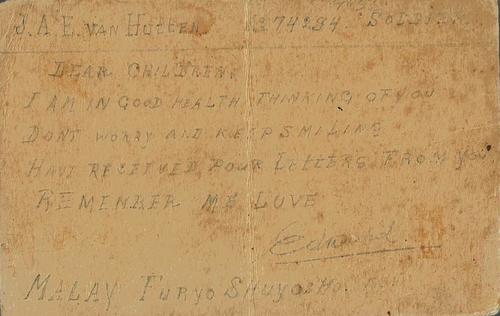 J.A.E. VAN HUTTEN. 274294. SOLDIER
DEAR CHILDREN,
I AM IN GOOD HEALTH THINKING OF YOU
DONT WORRY AND KEEP SMILING
HAVE RECEIVED FOUR LETTERS FROM YOU
REMEMBER ME LOVE
MALAY FURYO SHUYOSHO.